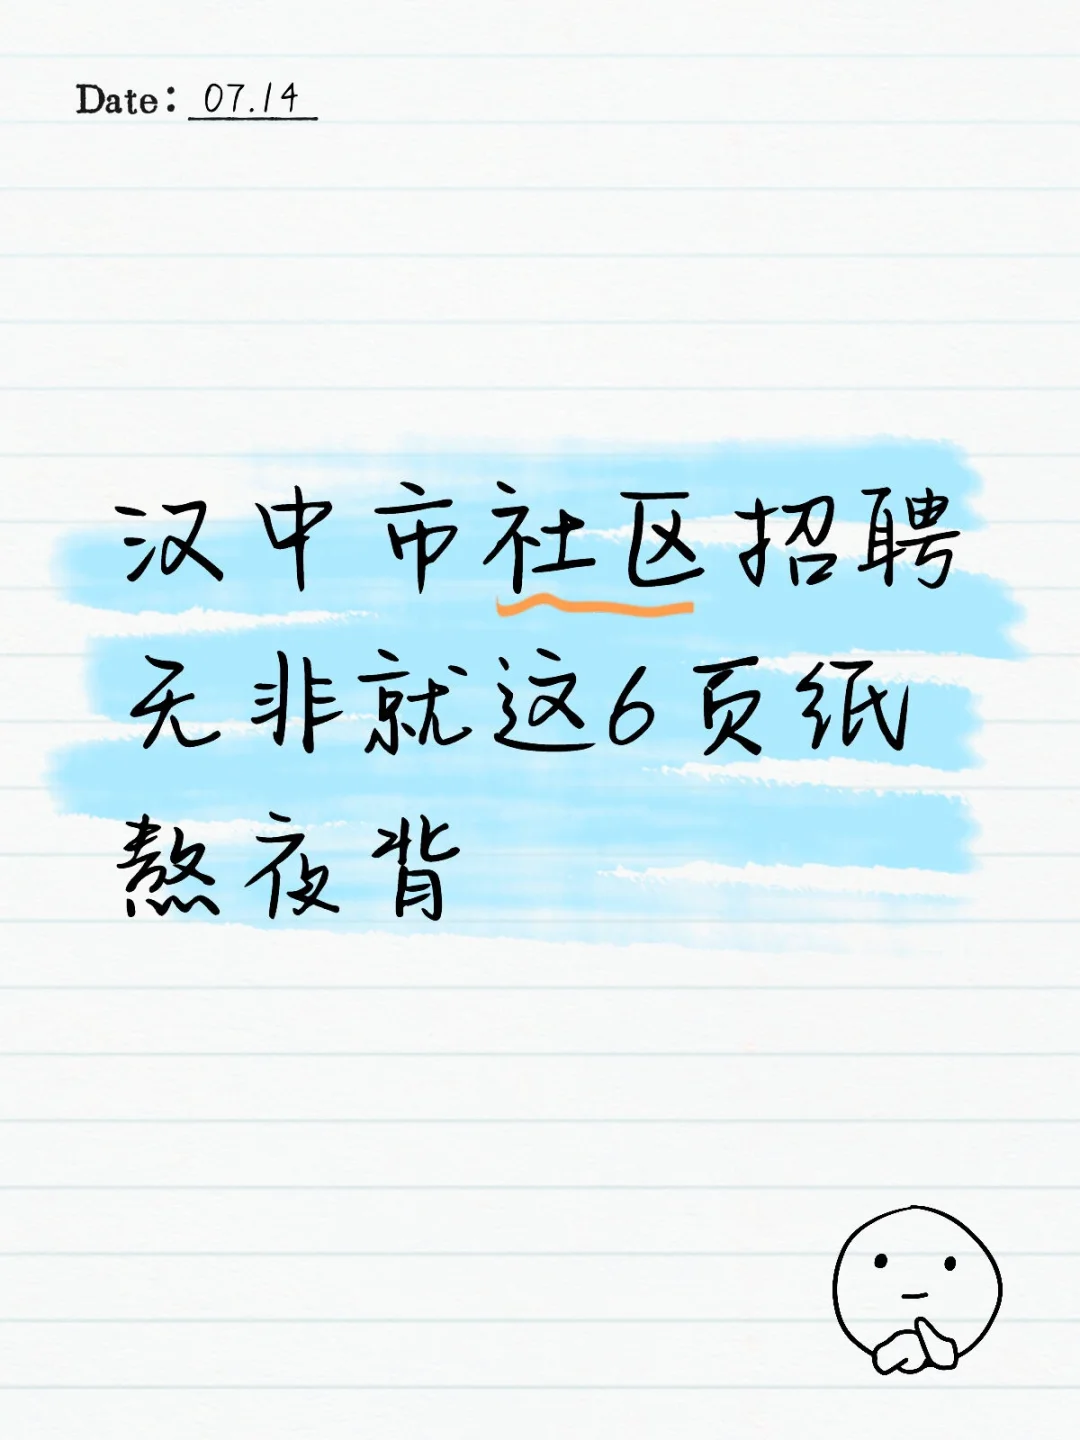 Date: 07.14
汉中市社区招聘
无非就这6页纸
熬夜背